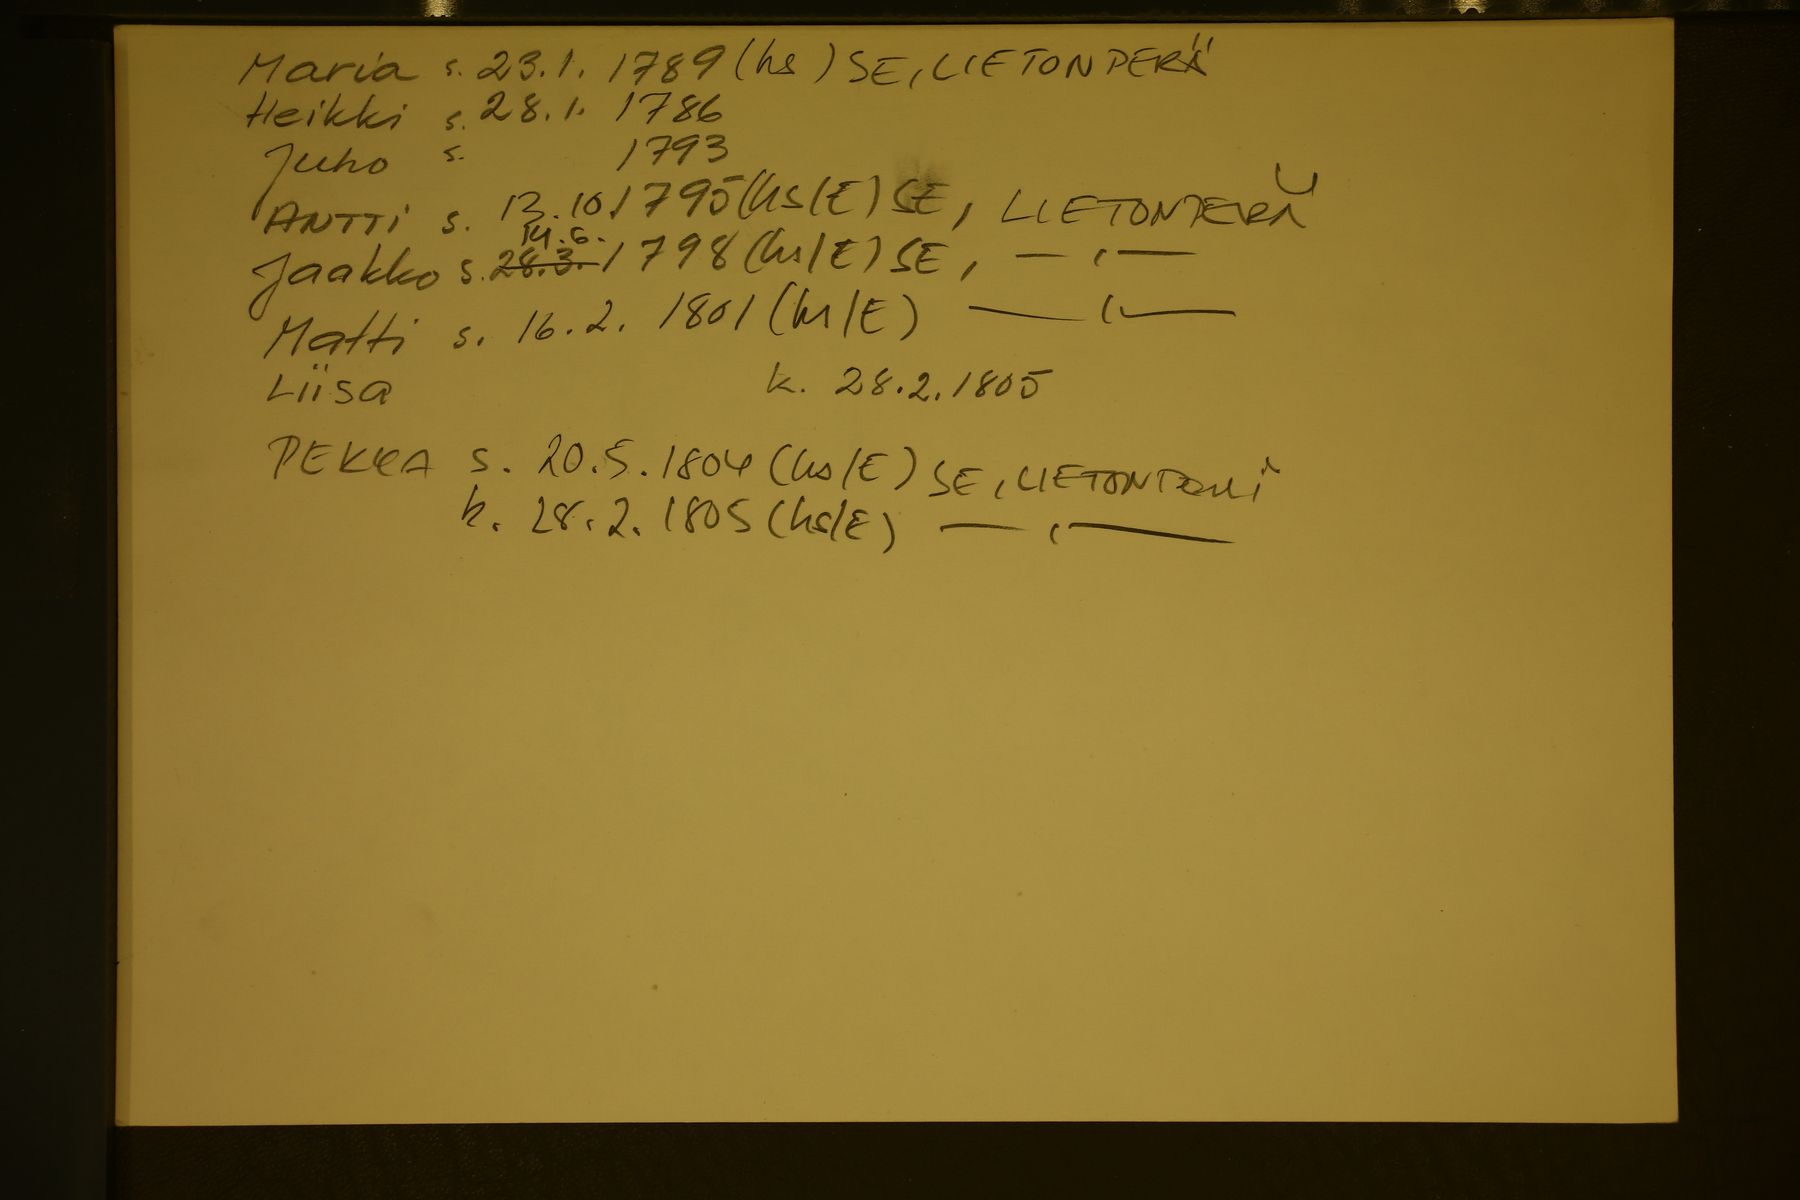 Maria s. 23.1. 1789 (hs) SE, LIETONPERÄ
Heikki s. 28.1. 1786
Juho s. 1793
ANTTI s. 13.10.1795 (hs/E) SE, LIETONPERÄ
14.6.
Jaakko s. 28.3. 1798 (hs/E) SE, — , —
Matti s. 16.2. 1801 (hs/E) — , —
Liisa k. 28.2.1805
PEKKA s. 20.5.1804 (hs/E) SE, LIETONPERÄ
k. 28.2.1805 (hs/E) — , —